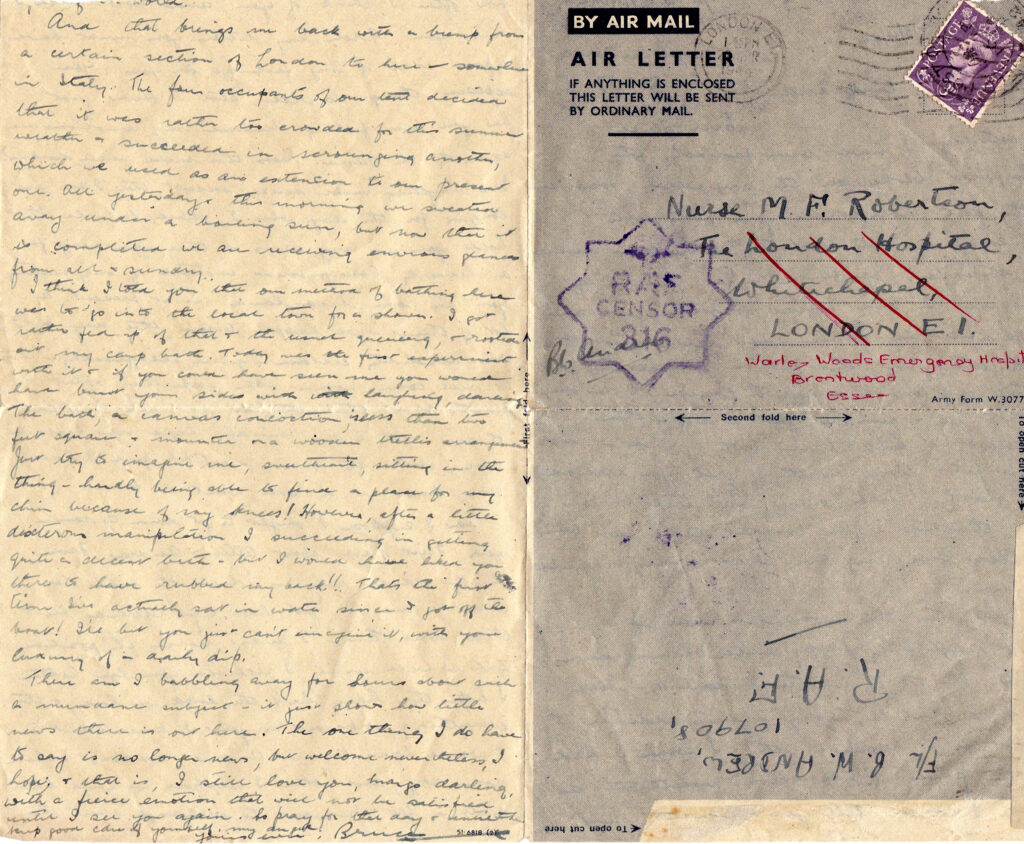 world.
And that brings me back with a bump from
a certain section of London to here – somewhere
in Italy. The four occupants of our tent decided
that it was rather too crowded for this summer
weather & succeeded in scrounging another,
which we used as an extension to our present
one. All yesterday & this morning we sweated
away under a boiling sun, but now that it
is completed we are receiving envious glances
from all & sundry.
I think I told you that our method of bathing here
was to go into the local town for a shower. I got
rather fed up of that & the usual queueing, & rooted
out my camp bath. Today was the first experiment
with it & if you could have seen me you would
have burst your sides with laughing, darling.
The bath a canvas concoction, less than two
feet square & mounted on a wooden trellis arrangement
Just try to imagine me, sweetheart, sitting in the
thing – hardly being able to find a place for my
chin because of my knees! However, after a little
dexterous manipulation I succeeding in getting
quite a decent bath – but I would have liked you
there to have rubbed my back!! That's the first
time I've actually sat in water since I got off the
boat! I'll bet you just can't imagine it, with your
luxury of a daily dip.
There am I babbling away for hours about such
a mundane subject – it just shows how little
news there is out here. The one thing I do have
to say is no longer news, but welcome nevertheless, I
hope, & that is, I still love you, Margo darling,
with a fierce emotion that will not be satisfied
until I see you again. So pray for that day & until then
keep good care of yourself, my angel.
Yours ever, Bruce
51-6818
First fold here
BY AIR MAIL
AIR LETTER
IF ANYTHING IS ENCLOSED
THIS LETTER WILL BE SENT
BY ORDINARY MAIL.
LONDON E1
Nurse M F. Robertson,
The London Hospital,
Whitechapel,
LONDON E1.
RAF
CENSOR
316
Warley Woods Emergency Hospit
Brentwood
Essex
Army Form W.3077
Second fold here
To open cut here
F/L B. W. ANDREW,
107908,
R. A. F.
To open cut here